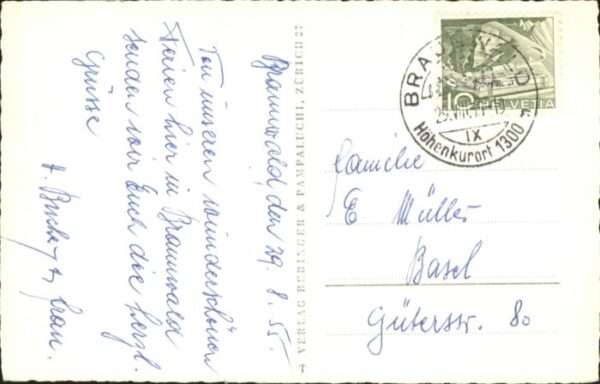 Braunwald, den 29. 8. 55.
Von unseren wunderschönen
Ferien hier in Braunwald
senden wir Euch die herzl.
Grüsse
Frau.
VERLAG BEBINGER & PAMPALUCHI, ZÜRICH 27
10 HELVETIA
BRAUNWALD
IX
Höhenkurort 1300
Familie
E Müller
Basel
Güterstr. 80